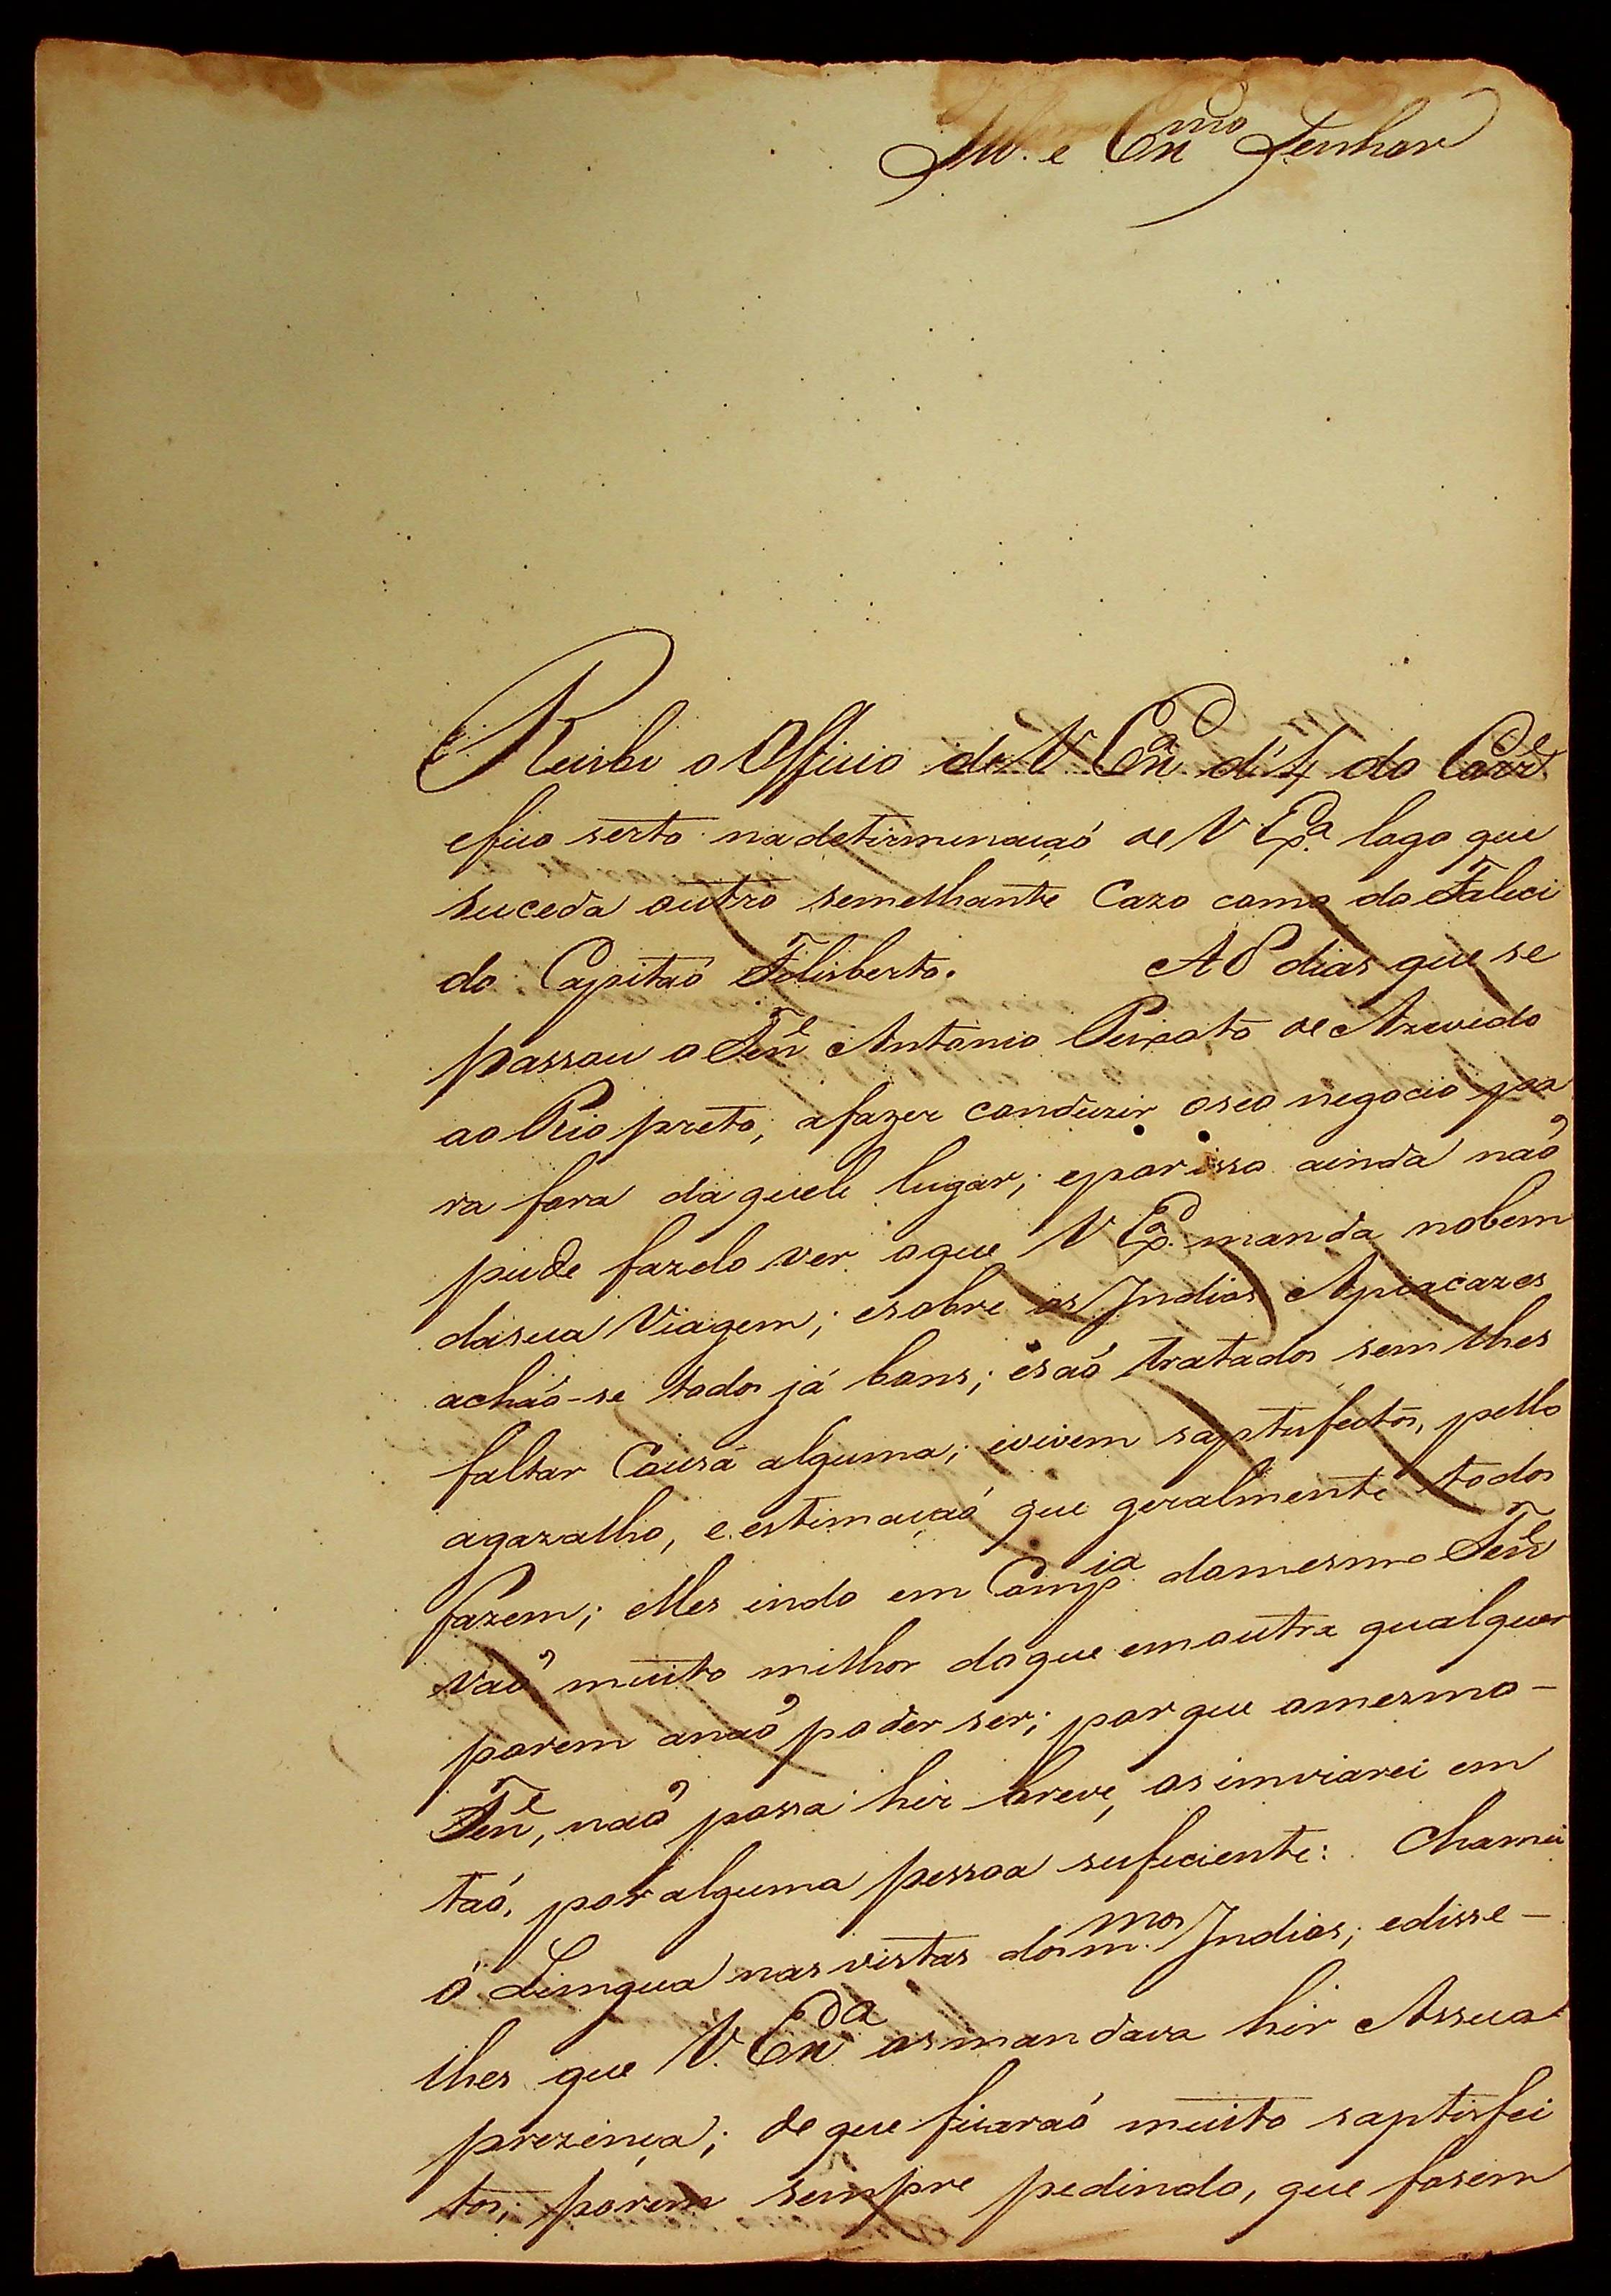 Ill. e Exmo Senhor
Recibi o Officio de V Exa d'4 do Corre
efico serto na detirminaçaõ de V Exa logo que
suceda outro semelhante Cazo como do Faleci
do Capitaõ Felisberto. A 8 dias que se
passou o Tene Antonio Peixoto de Azevedo
ao Rio preto, afazer conduzir oseo negocio pa
ra fora daquele lugar; eporisso ainda naõ
pude fazelo ver oque V Exa manda nobem
dasua Viagem; esobre os Indios Apiacazes
achaõ-se todos já bons; esaõ tratados sem lhes
faltar Couza alguma; evivem saptisfeitos, pello
agazalho, e estimaçaõ que geralmente todos
fazem; elles indo em Compia domesmo Tene
vaõ muito milhor doque emoutra qualquer
porem anaõ poder ser; porque omesmo-
Tene, naõ possa hir breve, os inviarei em
taõ, por alguma pessoa suficiente: Chamei
ó Lingua nas vistas dos mmos Indios; edisse-
lhes que V. Exa osmandava hir Assua
prezença; de que ficaraõ muito saptisfei
tos, porem sempre pedindo, que fosem